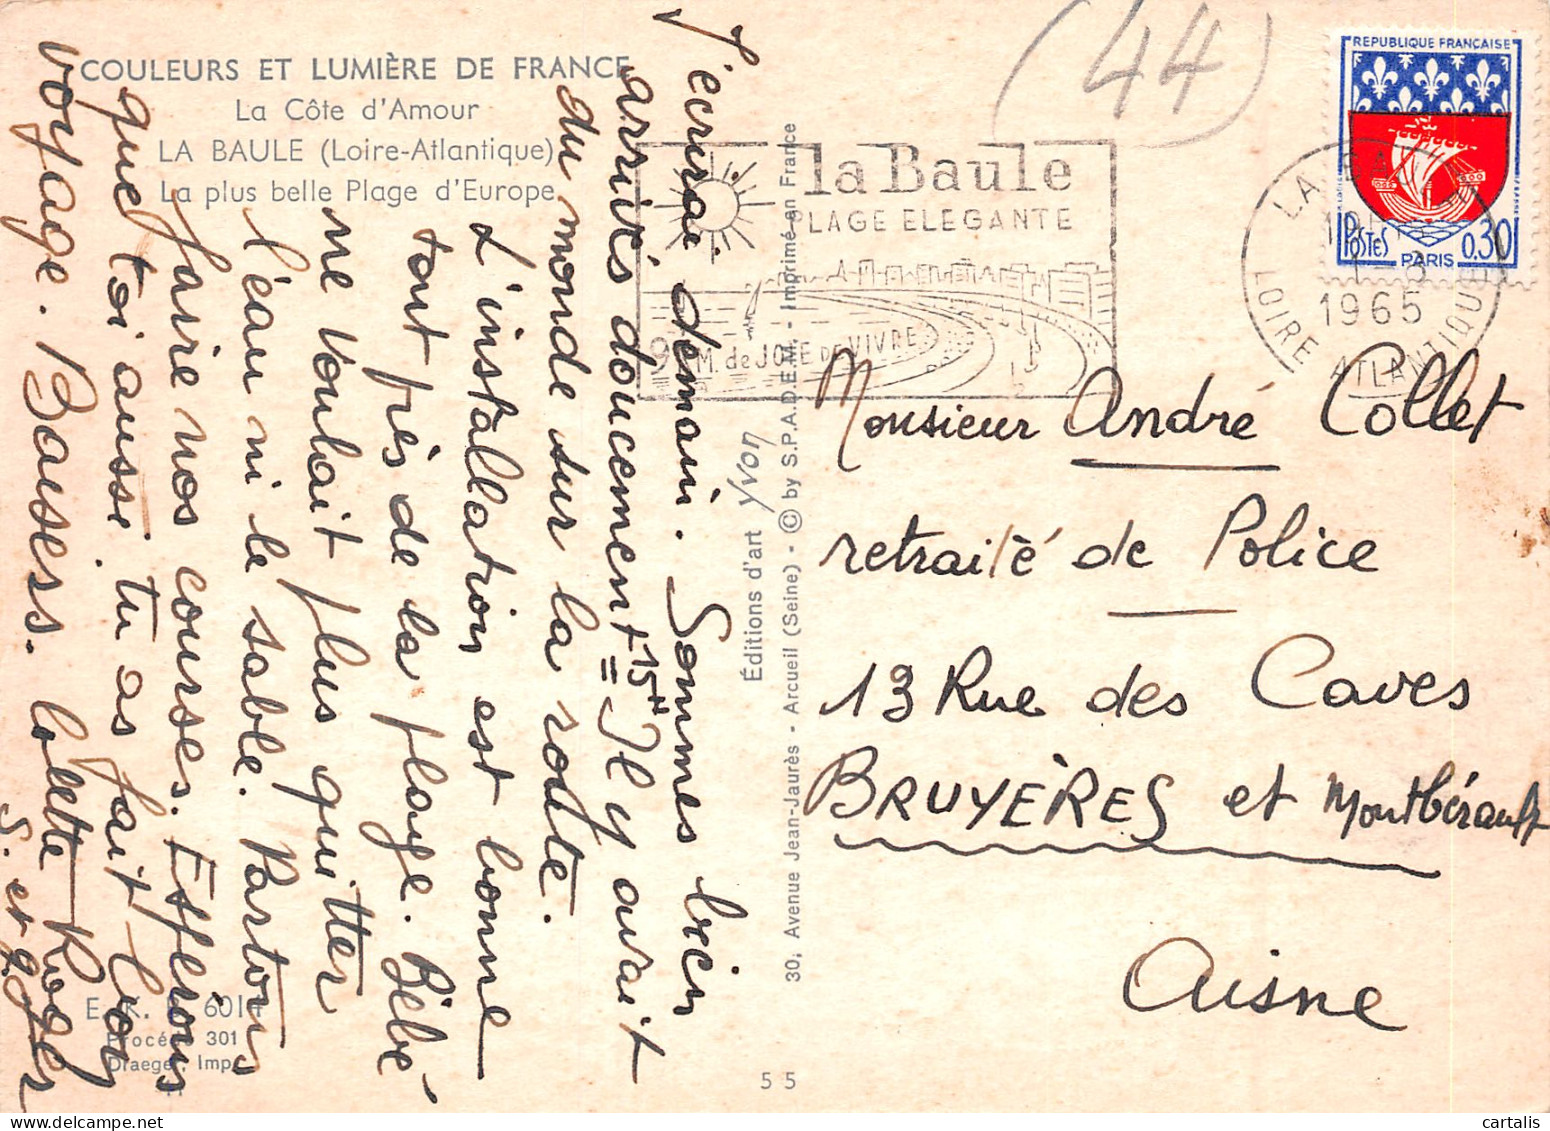 COULEURS ET LUMIÈRE DE FRANCE
La Côte d'Amour
LA BAULE (Loire-Atlantique)
La plus belle Plage d'Europe
J'écrirai demain. Sommes bien
arrivés doucement 15H = Il y avait
du monde sur la route.
L'installation est bonne
tout près de la plage. Bébé
ne voulait plus quitter
l'eau ni le sable. Partons
faire nos courses. Espérons
que toi aussi tu as fait bon
voyage. Baisers. Colette Roger
S. et
E. K. 6014
Procédé 301
Draeger, Imp.
Éditions d'art Yvon
30, Avenue Jean-Jaurès - Arcueil (Seine) - © by S.P.A.D.E.M. - Imprimé en France
5 5
(44)
la Baule
PLAGE ELEGANTE
9 KM. de JOIE DE VIVRE
LA BAULE
1965
LOIRE ATLANTIQUE
REPUBLIQUE FRANÇAISE
POSTES 0,30
PARIS
Monsieur André Collet
retraité de Police
13 Rue des Caves
BRUYÈRES et Montbérault
Aisne
cartalis